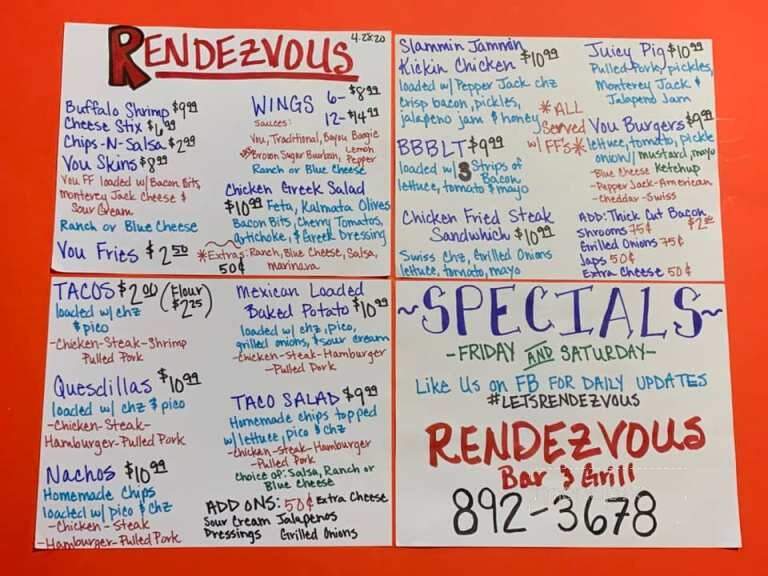 RENDEZVOUS
4.28.20
Buffalo Shrimp $9.99
Cheese Stix $6.99
Chips-N-Salsa $2.99
Vou Skins $8.99
Vou FF loaded w/Bacon Bits
Monterey Jack Cheese &
Sour Cream
Ranch or Blue Cheese
Vou Fries $2.50
WINGS 6- $8.99
12- $14.99
Sauces:
Vou, Traditional, Bayou Boogie
Brown Sugar Bourbon, Lemon Pepper
Ranch or Blue Cheese
Chicken Greek Salad
$10.99 Feta, Kalmata Olives
Bacon Bits, Cherry Tomatos,
artichoke, & Greek Dressing
*Extras: Ranch, Blue Cheese, Salsa,
50¢ marinara
Slammin Jammin
Kickin Chicken $10.99
loaded w/Pepper Jack chz
crisp bacon, pickles,
jalapeño jam & honey
*ALL
Served
w/ FF's*
BBBLT $9.99
loaded w/ 3 Strips of
Bacon
lettuce, tomato & mayo
Chicken Fried Steak
Sandwhich $10.99
Swiss chz, Grilled Onions
lettuce, tomato, mayo
Juicy Pig $10.99
Pulled Pork, pickles,
Monterey Jack &
Jalapeno Jam
Vou Burgers $9.99
lettuce, tomato, pickle
onion/ mustard, mayo
ketchup
-Blue Cheese
-Pepper Jack-American
-Cheddar-Swiss
ADD: Thick Cut Bacon
$2.00
Shrooms 75¢
Grilled Onions 75¢
Japs 50¢
Extra Cheese 50¢
TACOS $2.00 (Flour $2.25)
loaded w/ chz
& pico
-Chicken-Steak-Shrimp
Pulled Pork
Quesdillas $10.99
loaded w/ chz & pico
-Chicken-Steak-
Hamburger-Pulled Pork
Nachos $10.99
Homemade Chips
loaded w/ pico & chz
-Chicken-Steak
-Hamburger-Pulled Pork
Mexican Loaded
Baked Potato $10.99
loaded w/ chz, pico,
grilled onions, & sour cream
-Chicken-Steak-Hamburger
-Pulled Pork
TACO SALAD $9.99
Homemade chips topped
w/lettuce, pico & chz
-Chicken-steak-Hamburger
-Pulled Pork
Choice of: Salsa, Ranch or
Blue Cheese
ADD ONS: 50¢ Extra Cheese
Sour Cream Jalapeños
Dressings Grilled Onions
~SPECIALS~
-FRIDAY AND SATURDAY-
Like Us on FB FOR DAILY UPDATES
#LETSRENDEZVOUS
RENDEZVOUS
Bar & Grill
892-3678